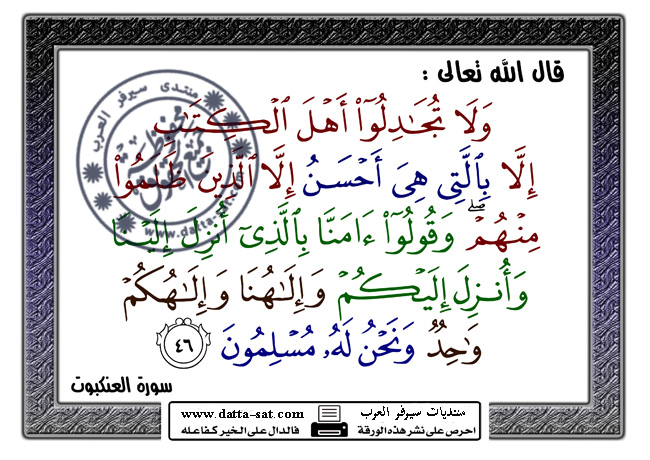 قال الله تعالى :
وَلَا تُجَٰدِلُوٓا۟ أَهْلَ ٱلْكِتَٰبِ
إِلَّا بِٱلَّتِى هِىَ أَحْسَنُ إِلَّا ٱلَّذِينَ ظَلَمُوا۟
مِنْهُمْ ۖ وَقُولُوٓا۟ ءَامَنَّا بِٱلَّذِىٓ أُنزِلَ إِلَيْنَا
وَأُنزِلَ إِلَيْكُمْ وَإِلَٰهُنَا وَإِلَٰهُكُمْ
وَٰحِدٌ وَنَحْنُ لَهُۥ مُسْلِمُونَ ٤٦
سورة العنكبوت
منتديات سيرفر العرب www.datta-sat.com
احرص على نشر هذه الورقة فالدال على الخير كفاعله
منتدى سيرفر العرب
جميع الحقوق محفوظة
www.datta-sat.com